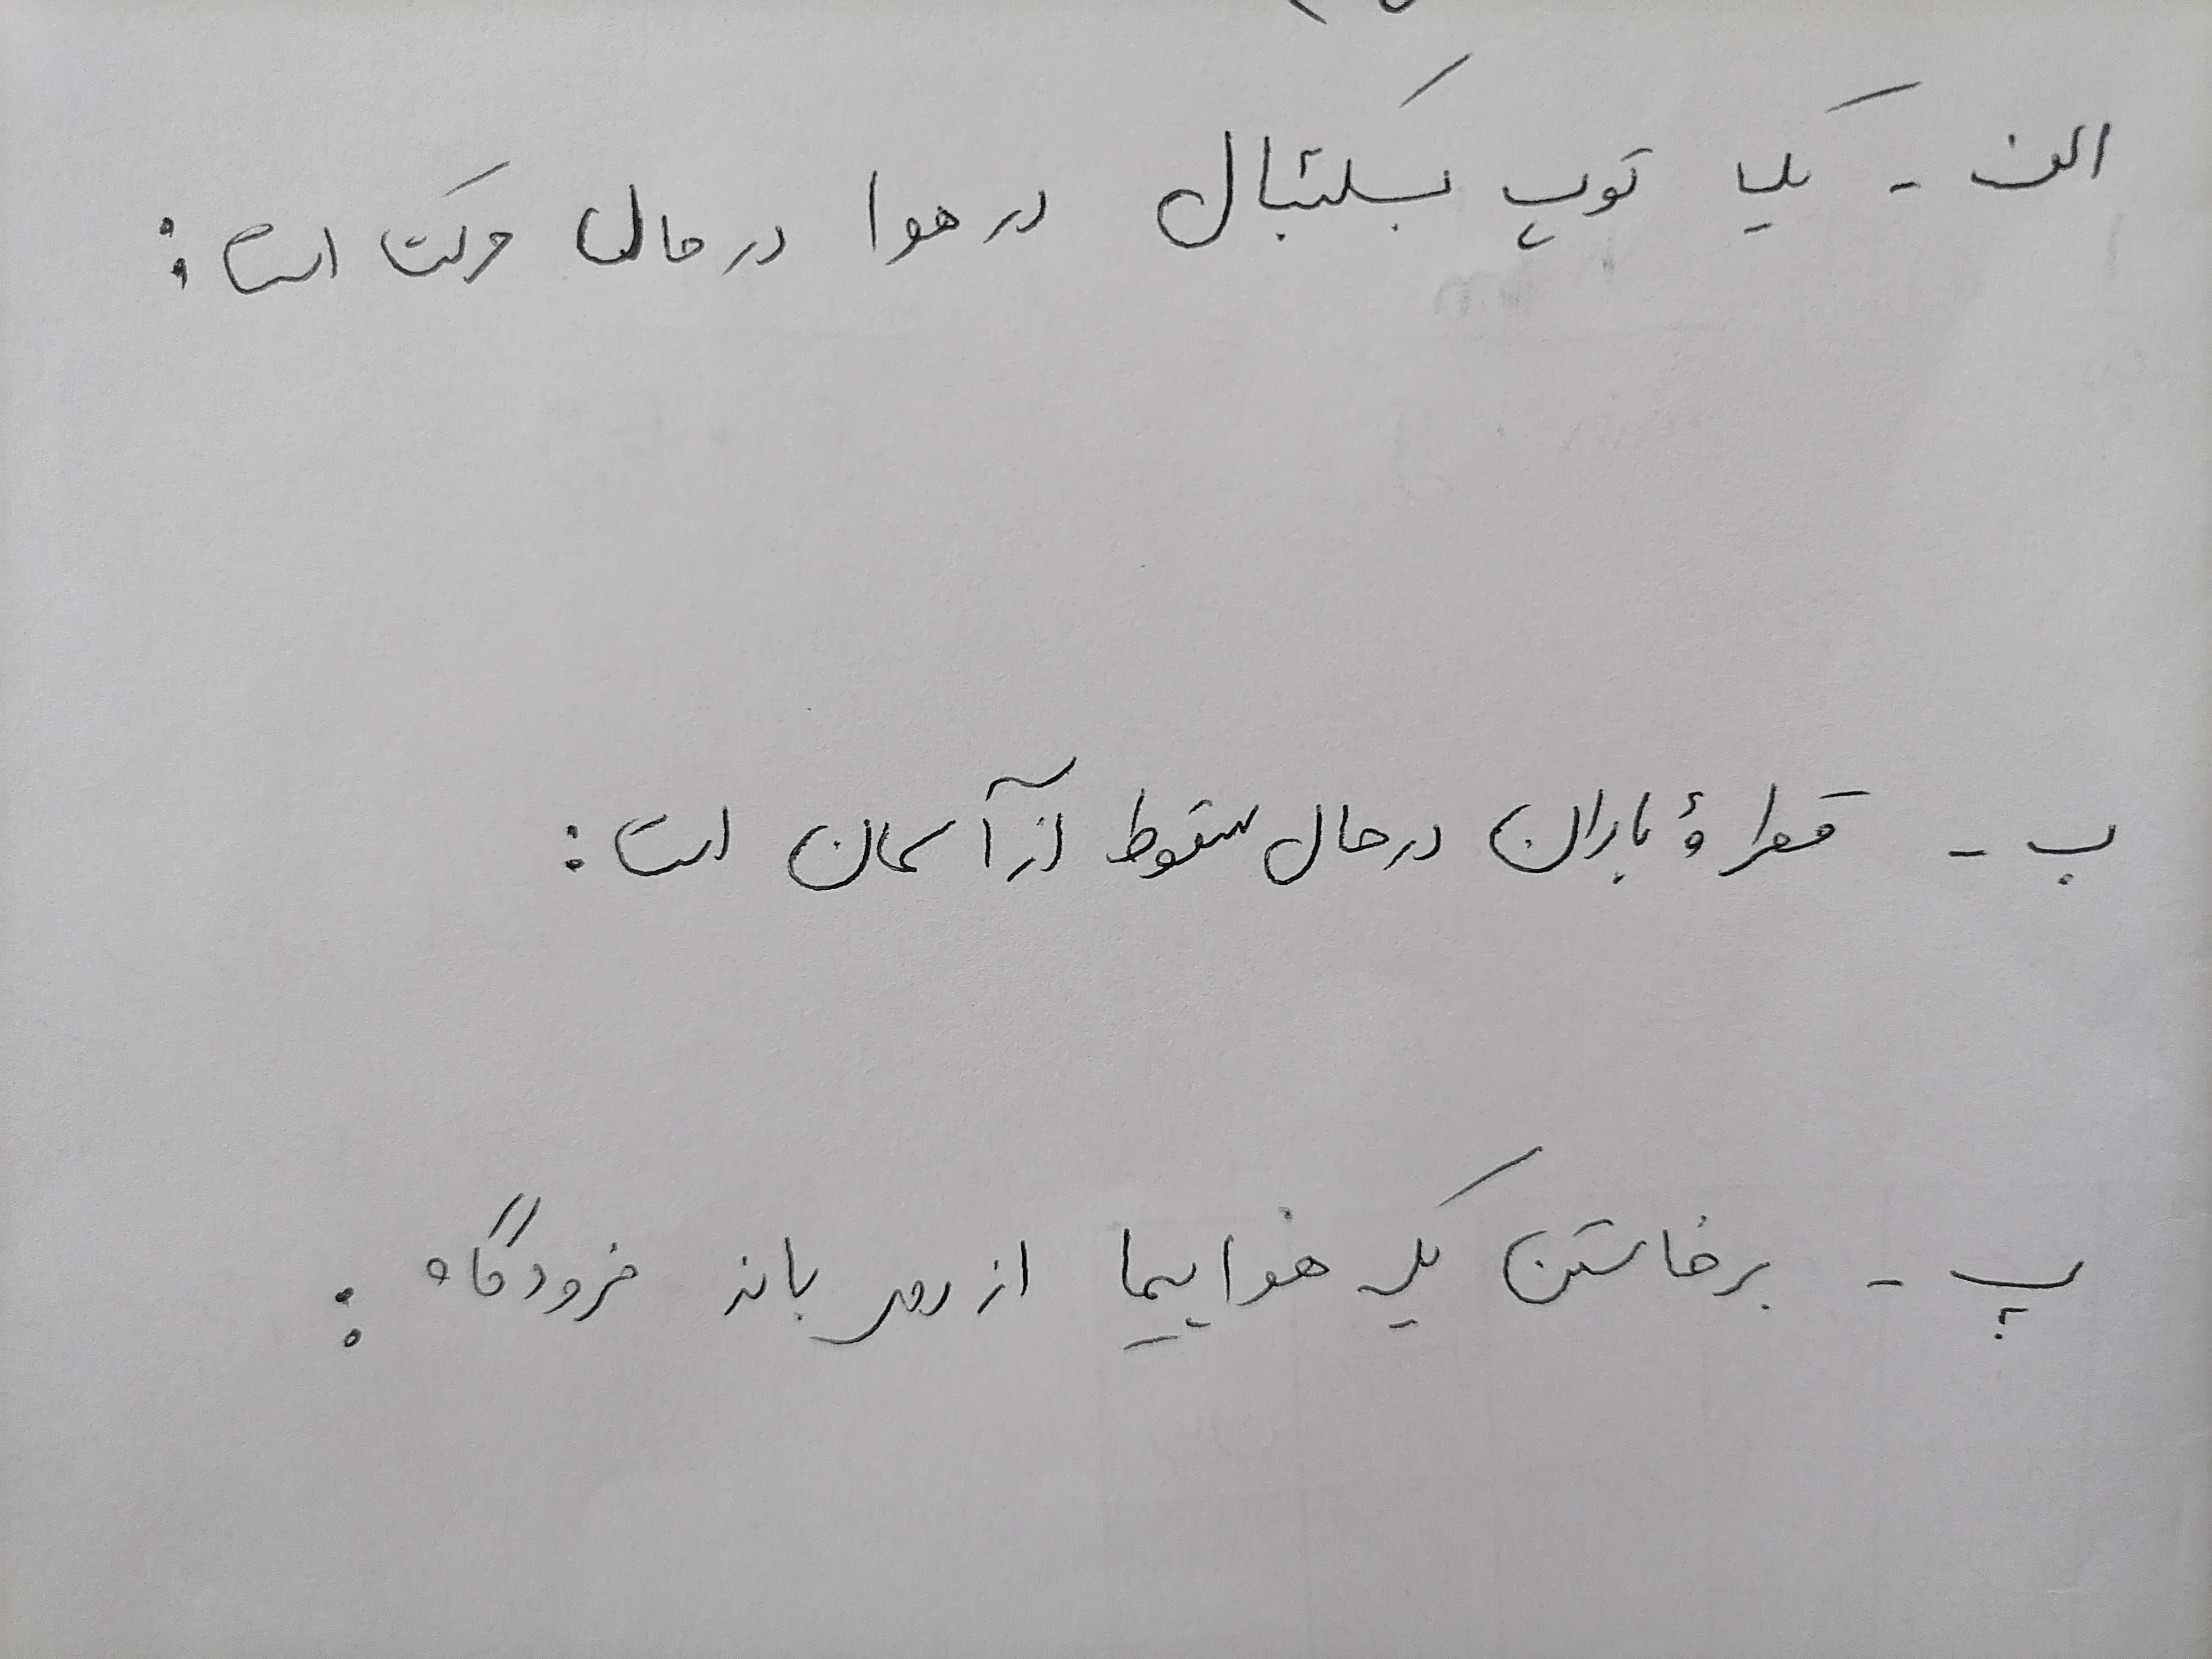 الف - یک توپ بسکتبال در هوا در حال حرکت است :
ب - قطرهٔ باران در حال سقوط از آسمان است :
پ - برخاستن یک هواپیما از روی باند فرودگاه :